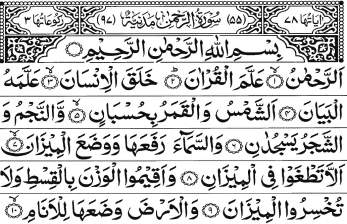 اٰيَاتُهَا ٧٨ (٥٥) سُوْرَةُ الرَّحْمٰنِ مَدَنِيَّةٌ (٩٧) رُكُوْعَاتُهَا ٣
بِسْمِ اللّٰهِ الرَّحْمٰنِ الرَّحِيْمِ
اَلرَّحْمٰنُ ۙ﴿١﴾ عَلَّمَ الْقُرْاٰنَ ؕ﴿٢﴾ خَلَقَ الْاِنْسَانَ ۙ﴿٣﴾ عَلَّمَهُ
الْبَيَانَ ﴿٤﴾ اَلشَّمْسُ وَ الْقَمَرُ بِحُسْبَانٍ ۪﴿٥﴾ وَّ النَّجْمُ وَ
الشَّجَرُ يَسْجُدٰنِ ﴿٦﴾ وَ السَّمَآءَ رَفَعَهَا وَ وَضَعَ الْمِيْزَانَ ۙ﴿٧﴾
اَلَّا تَطْغَوْا فِي الْمِيْزَانِ ﴿٨﴾ وَ اَقِيْمُوا الْوَزْنَ بِالْقِسْطِ وَ لَا
تُخْسِرُوا الْمِيْزَانَ ﴿٩﴾ وَ الْاَرْضَ وَضَعَهَا لِلْاَنَامِ ۙ﴿١٠﴾